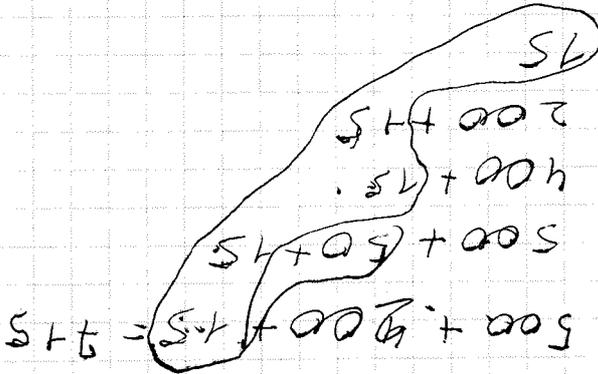 500 + 200 + 15 = 715
500 + 50 + 15
400 + 15
200 + 15
15